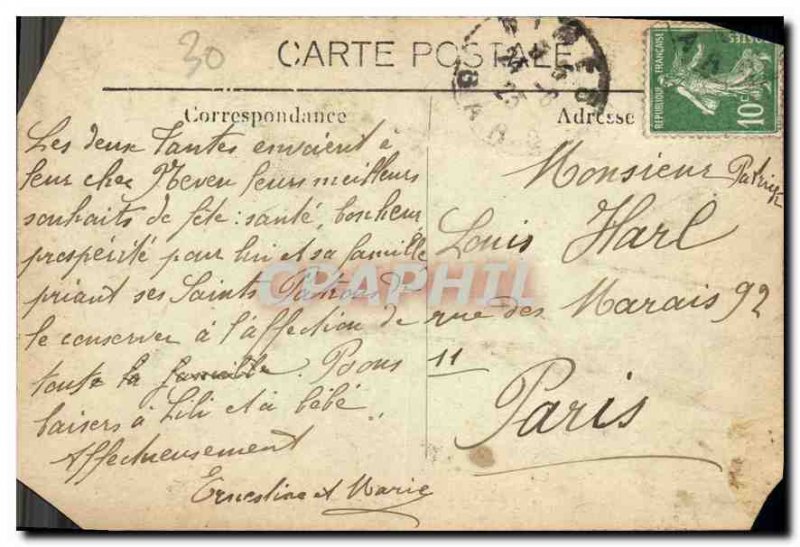 30
CARTE POSTALE
RÉPUBLIQUE FRANÇAISE
POSTES
10c
Correspondance
Adresse
Les deux Tantes envoient à
leur cher Neveu leurs meilleurs
souhaits de fête : santé, bonheur,
prospérité pour lui et sa famille
priant ses Saints Patrons de
le conserver à l'affection de
toute la famille. Bons
baisers à Lili et à bébé.
Affectueusement
Ernestine et Marie
Monsieur
Louis Harl
rue des Marais 92
11
Paris
CPAPHIL